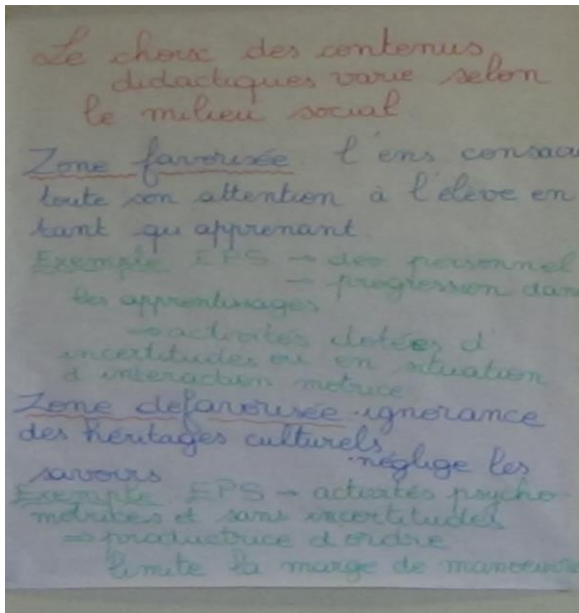 Le choix des contenus
didactiques varie selon
le milieu social
Zone favorisée l'ens consac
toute son attention à l'élève en
tant qu'apprenant.
Exemple EPS → dev personnel
→ progression dan
les apprentissages
→ activités dotées d'
incertitudes ou en situation
d'interaction motrice
Zone défavorisée · ignorance
des héritages culturels
· néglige les
savoirs
Exemple EPS → activités psycho
motrices et sans incertitudes
⇒ productrice d'ordre
limite la marge de manoeuvre